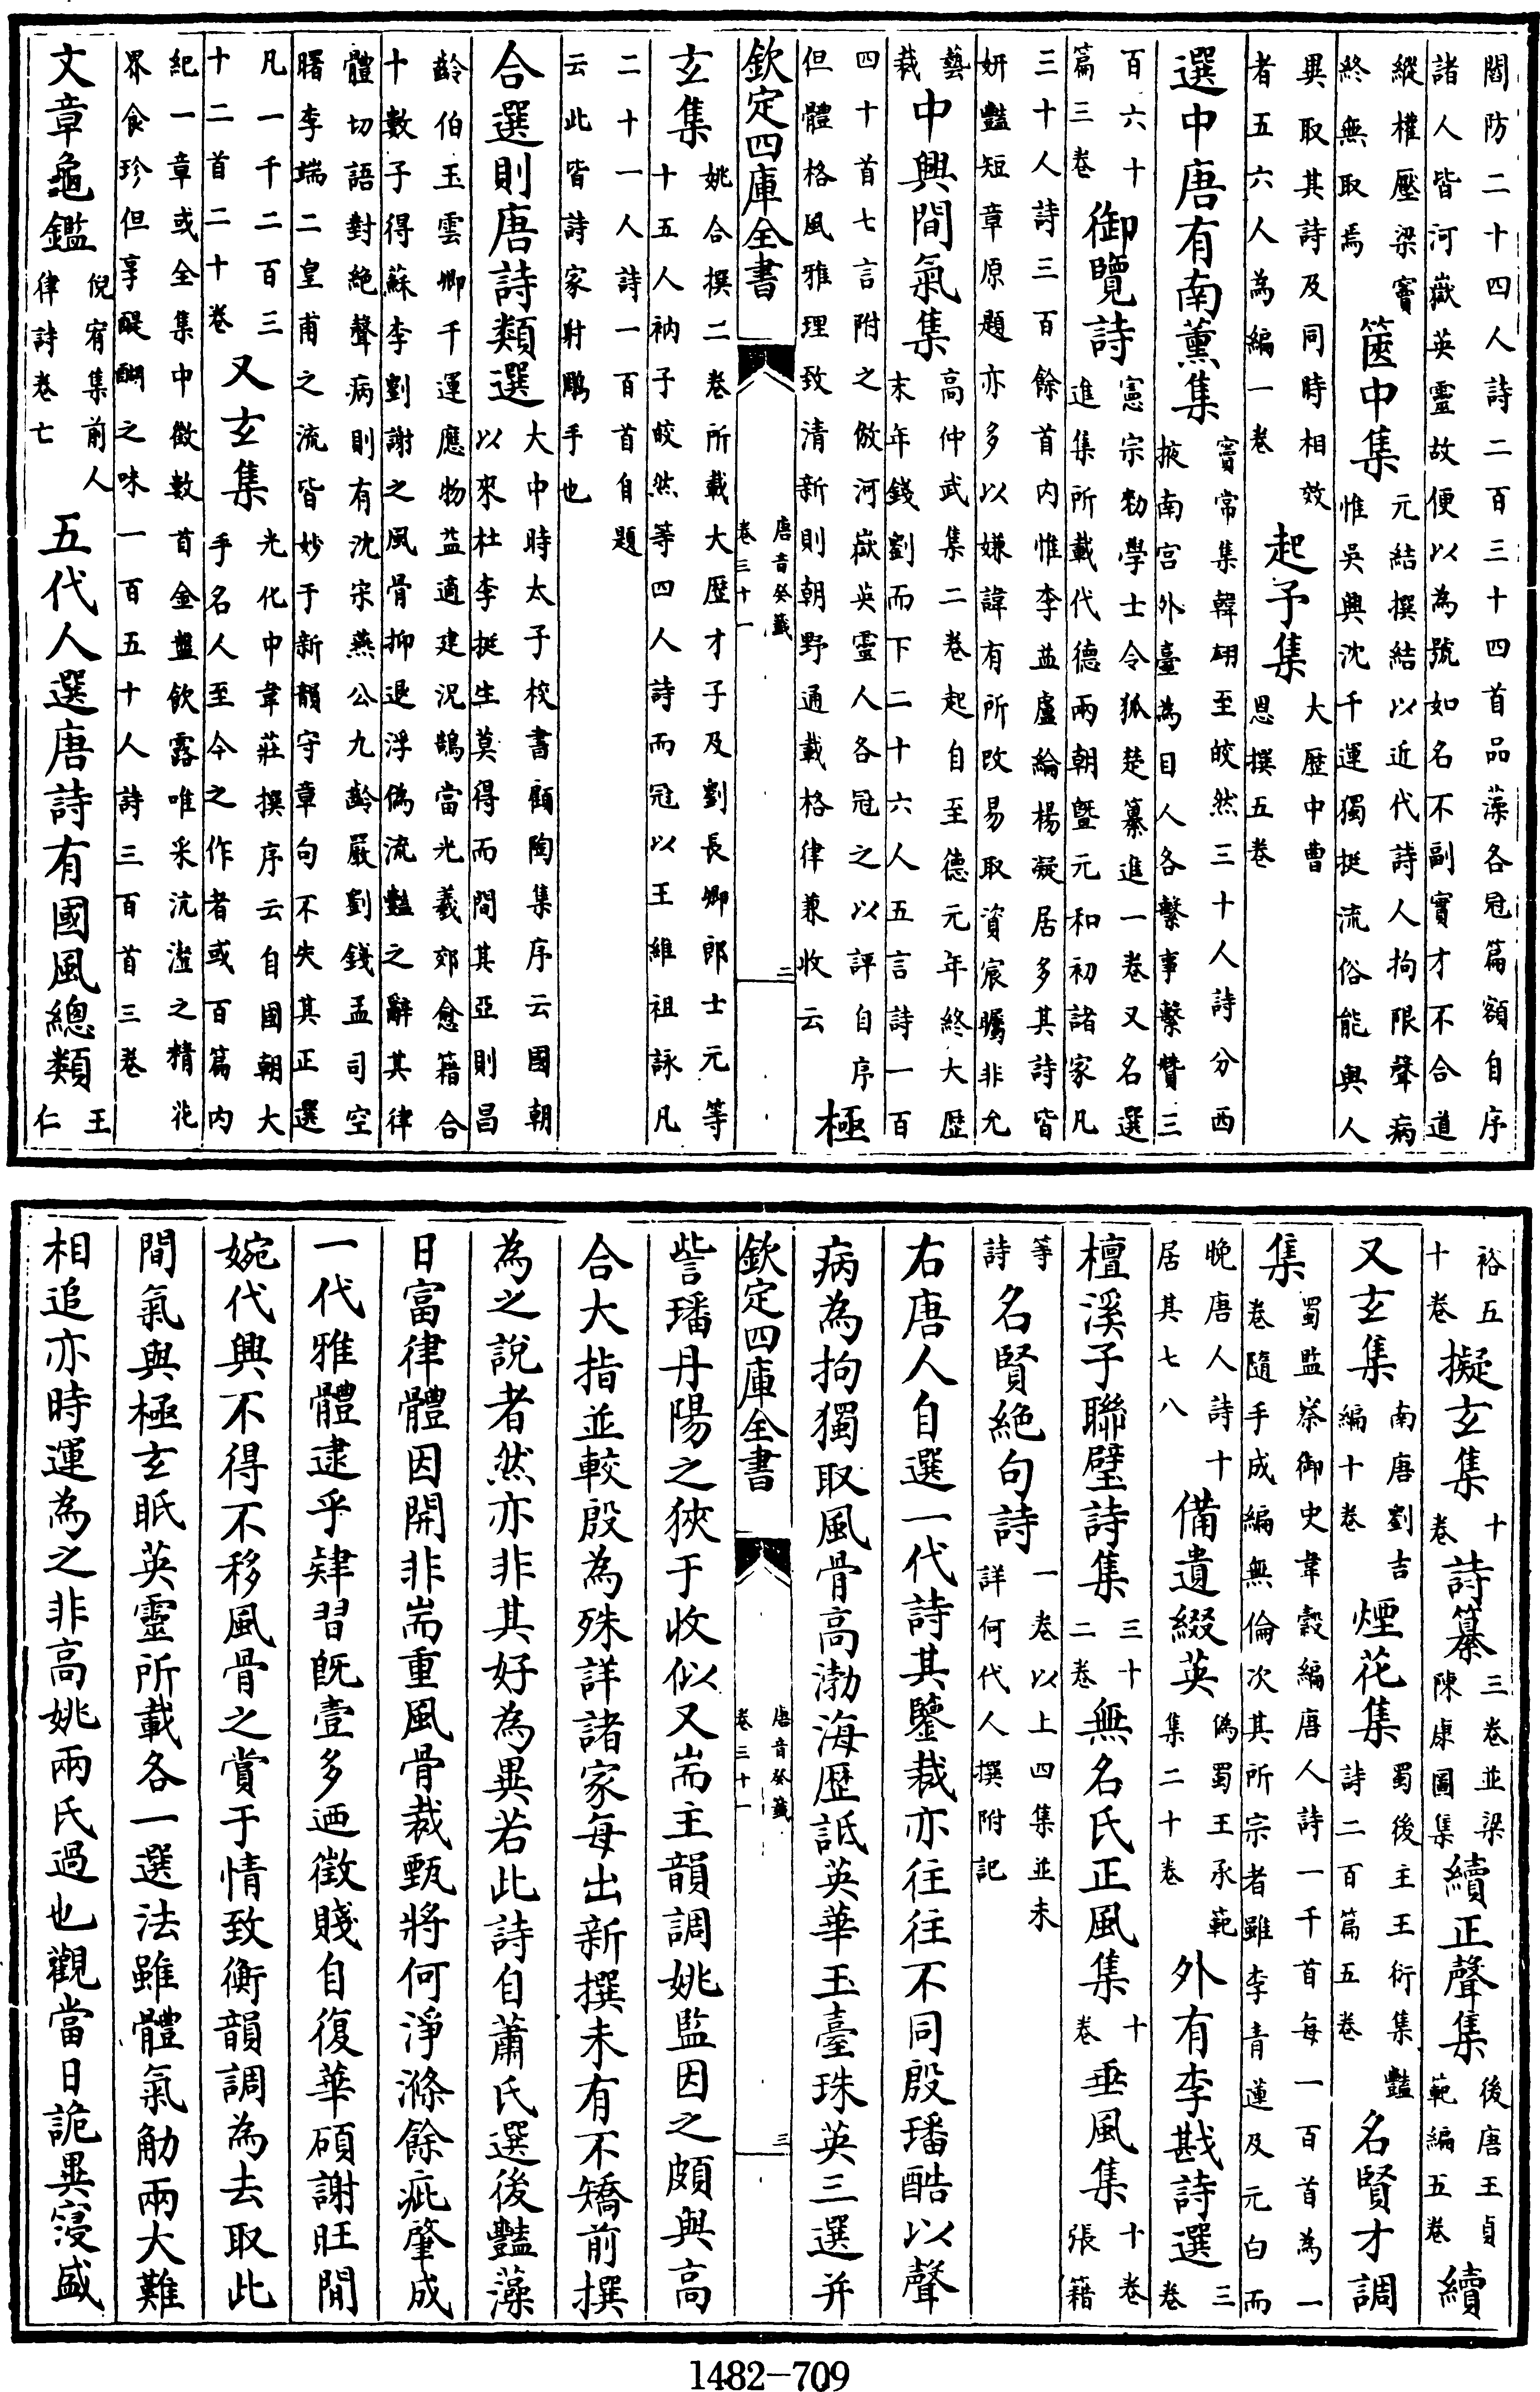 閻防二十四人詩二百三十四首品藻各冠篇額自序
諸人皆河嶽英靈故便以為號如名不副實才不合道
縱權壓梁竇
終無取焉
篋中集
元結撰結以近代詩人拘限聲病
惟吳興沈千運獨挺流俗能與人
異取其詩及同時相效
者五六人為編一卷
起予集
大歴中曹
恩撰五卷
選中唐有南薰集
竇常集韓翃至皎然三十人詩分西
掖南宫外臺為目人各繫事繫贊三
百六十
篇三卷
御覽詩
憲宗勅學士令狐楚纂進一卷又名選
進集所載代德兩朝暨元和初諸家凡
三十人詩三百餘首内惟李益盧綸楊凝居多其詩皆
妍豔短章原題亦多以嫌諱有所改易取資宸矚非允
藝
裁
中興間氣集
高仲武集二卷起自至德元年終大歴
末年錢劉而下二十六人五言詩一百
四十首七言附之倣河嶽英靈人各冠之以評自序
但體格風雅理致清新則朝野通載格律兼收云
極
欽定四庫全書
唐音癸籤
卷三十一
二
玄集
姚合撰二卷所載大歴才子及劉長卿郎士元等
十五人衲子皎然等四人詩而冠以王維祖詠凡
二十一人詩一百首自題
云此皆詩家射鵰手也
合選則唐詩類選
大中時太子校書顧陶集序云國朝
以來杜李挺生莫得而間其亞則昌
齡伯玉雲卿千運應物益適建況鵠當光羲郊愈籍合
十數子得蘇李劉謝之風骨抑退浮偽流豔之辭其律
體切語對絶聲病則有沈宋燕公九齡嚴劉錢孟司空
曙李端二皇甫之流皆妙于新韻守章句不失其正選
凡一千二百三
十二首二十卷
又玄集
光化中韋莊撰序云自國朝大
手名人至今之作者或百篇内
紀一章或全集中徵數首金盤飲露唯采沆瀣之精花
界食珍但享醍醐之味一百五十人詩三百首三卷
文章龜鑑
倪宥集前人
律詩卷七
五代人選唐詩有國風總類
王
仁
裕五
十卷
擬玄集
十
卷
詩纂
三卷並梁
陳康圖集
續正聲集
後唐王貞
範編五卷
續
又玄集
南唐劉吉
編十卷
煙花集
蜀後主王衍集豔
詩二百篇五卷
名賢才調
集
蜀監察御史韋縠編唐人詩一千首每一百首為一
卷隨手成編無倫次其所宗者雖李青蓮及元白而
晚唐人詩十
居其七八
備遺綴英
偽蜀王承範
集二十卷
外有李戡詩選
三
卷
檀溪子聯璧詩集
三十
二卷
無名氏正風集
十
卷
垂風集
十卷
張籍
等
詩
名賢絶句詩
一卷以上四集並未
詳何代人撰附記
右唐人自選一代詩其鑒裁亦往往不同殷璠酷以聲
病為拘獨取風骨高渤海歴詆英華玉臺珠英三選并
欽定四庫全書
唐音癸籤
卷三十一
三
訾璠丹陽之狹于收似又耑主韻調姚監因之頗與高
合大指並較殷為殊詳諸家每出新撰未有不矯前撰
為之說者然亦非其好為異若此詩自蕭氏選後豔藻
日富律體因開非耑重風骨裁甄將何淨滌餘疵肇成
一代雅體逮乎肄習既壹多迺徵賤自復華碩謝旺閒
婉代興不得不移風骨之賞于情致衡韻調為去取此
間氣與極玄眂英靈所載各一選法雖體氣觔兩大難
相追亦時運為之非高姚兩氏過也觀當日詭異寖盛
1482-709